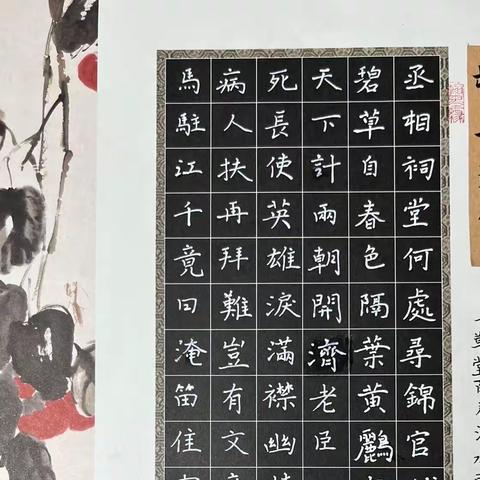 丞相祠堂何處尋錦官城
碧草自春色隔葉黃鸝
天下計兩朝開濟老臣
死長使英雄淚滿襟幽
病人扶再拜難豈有文
馬駐江千竟日淹留佳